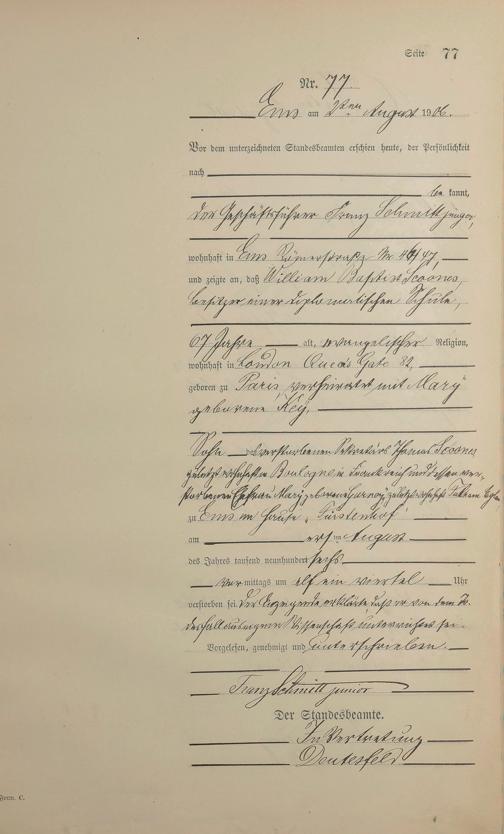 Seite 77
Nr. 77.
Ems am 2ten August 1906.
Vor dem unterzeichneten Standesbeamten erschien heute, der Persönlichkeit
nach
be kannt,
der Geschäftsführer Franz Schmitt junior,
wohnhaft in Ems Römerstraße Nr 46/47,
und zeigte an, daß William Baptist Scoones,
Besitzer einer diplomatischen Schule,
67 Jahre alt, evangelischer Religion,
wohnhaft in London Gate 82,
geboren zu Paris, verheiratet mit Mary
geborene Key,
Sohn des verstorbenen Sekretärs Thomas Scoones
zuletzt wohnhaft in Boulogne in Frankreich und dessen ver-
storbenen Ehefrau Mary geborene zuletzt wohnhaft
zu Ems im Hause „Fürstenhof"
am ersten August
des Jahres tausend neunhundert sechs
vor mittags um elf ein viertel Uhr
verstorben sei. Der Anzeigende erklärte, daß er von dem
aus eigener Wissenschaft unterrichtet sei.
Vorgelesen, genehmigt und unterschrieben.
Franz Schmitt junior
Der Standesbeamte.
In Vertretung
Form. C.